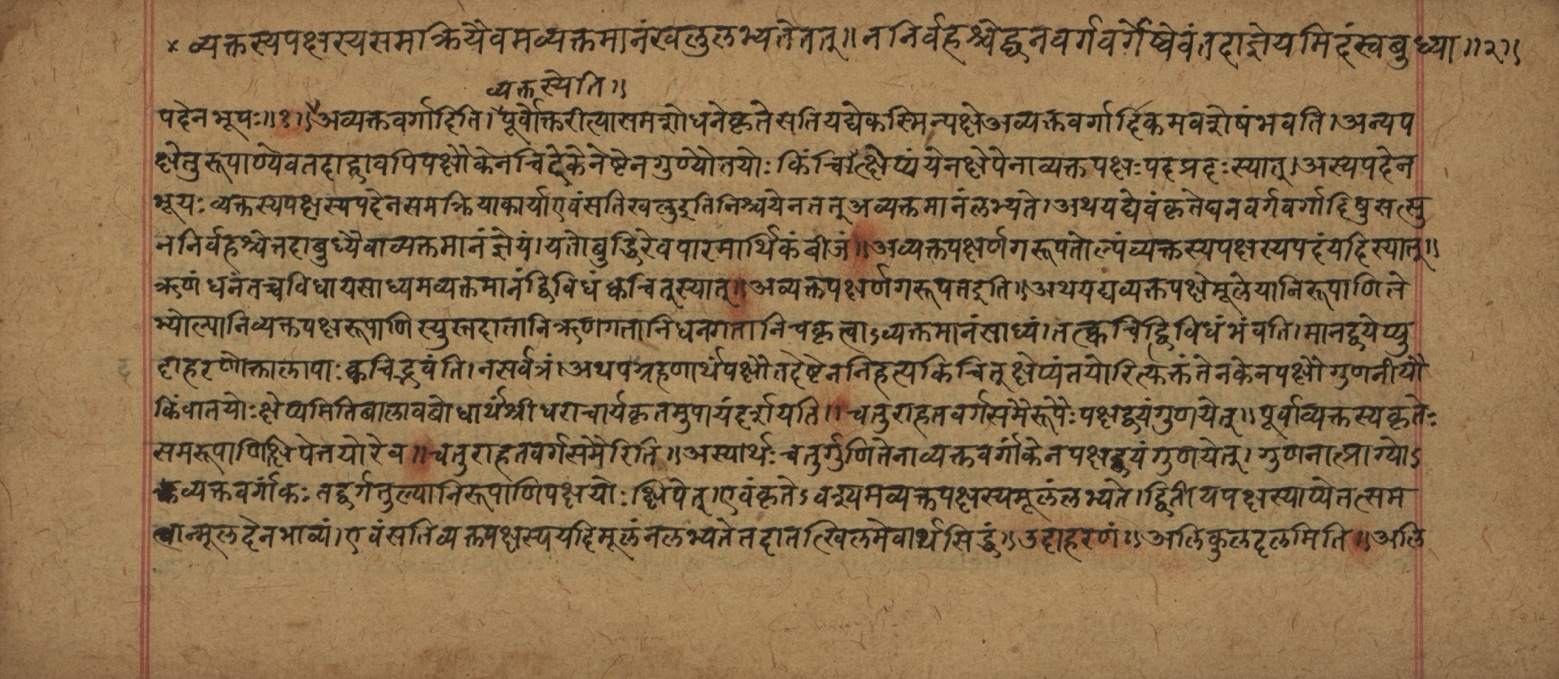 × व्यक्तस्यपक्षस्यसमक्रियैवमव्यक्तमानंखलुलभ्यतेतत्॥ ननिर्वहश्चेद्घनवर्गवर्गेष्वेवंतदाज्ञेयमिदंस्वबुध्या॥२॥
व्यक्तस्येति॥
पदेनभूयः॥१॥अव्यक्तवर्गादिति।पूर्वोक्तरीत्यासमशोधनेकृतेसतियद्येकस्मिन्पक्षेअव्यक्तवर्गादिकमवशेषंभवति।अन्यप
क्षेतुरूपाण्येवतदाद्वावपिपक्षौकेनचिदेकेनेष्टेनगुण्यौतयोः किंचित्क्षेप्यंयेनक्षेपेनाव्यक्तपक्षःपदप्रदःस्यात्।अस्यपदेन
भूयःव्यक्तस्यपक्षस्यपदेनसमक्रियाकार्याएवंसतिखलुइतिनिश्चयेनतत्अव्यक्तमानंलभ्यते।अथयद्येवंकृतेघनवर्गवर्गादिषुसत्सु
ननिर्वहश्चेत्तदाबुध्यैवाव्यक्तमानंज्ञेयं।यतोबुद्धिरेवपारमार्थिकंबीजं॥अव्यक्तपक्षर्णगरूपतोल्पंव्यक्तस्यपक्षस्यपदंयदिस्यात्॥
ऋणं धनंतच्चविधायसाध्यमव्यक्तमानंद्विविधंक्वचित्स्यात्॥अव्यक्तपक्षर्णगरूपतइति॥अथयद्यव्यक्तपक्षेमूलेयानिरूपाणिते
भ्योल्पानिव्यक्तपक्षरूपाणिस्युस्तदातानिऋणगतानिधनगतानिचकृत्वाऽव्यक्तमानंसाध्यं।तत्क्वचिद्द्विविधंभवति।मानद्वयेप्यु
दाहरणोक्तालापाःक्वचिद्भवंति।नसर्वत्रं।अथपदग्रहणार्थंपक्षौतदेष्टेननिहत्यकिंचित्क्षेप्यंतयोरित्युक्तंतेनकेनपक्षौगुणनीयौ
किंवातयोःक्षेप्यमितिबालावबोधार्थंश्रीधराचार्यकृतमुपायंदर्शयति॥चतुराहतवर्गसमैरूपैःपक्षद्वयंगुणयेत्॥पूर्वाव्यक्तस्यकृतेः
समरूपाणिक्षिपेत्तयोरेव॥चतुराहतवर्गसमैरिति॥अस्यार्थःचतुर्गुणितेनाव्यक्तवर्गांकेनपक्षद्वयंगुणयेत्।गुणनात्प्राग्योऽ
व्यक्तवर्गांकःतद्वर्गतुल्यानिरूपाणिपक्षयोःक्षिपेत्।एवंकृतेऽवश्यमव्यक्तपक्षस्यमूलंलभ्यते।द्वितीयपक्षस्याप्येतत्सम
त्वान्मूलदेनभाव्यं।एवंसतिव्यक्तपक्षस्ययदिमूलंनलभ्यतेतदातत्खिलमेवार्थसिद्धं॥उदाहरणं॥अलिकुलदलमिति॥अलि